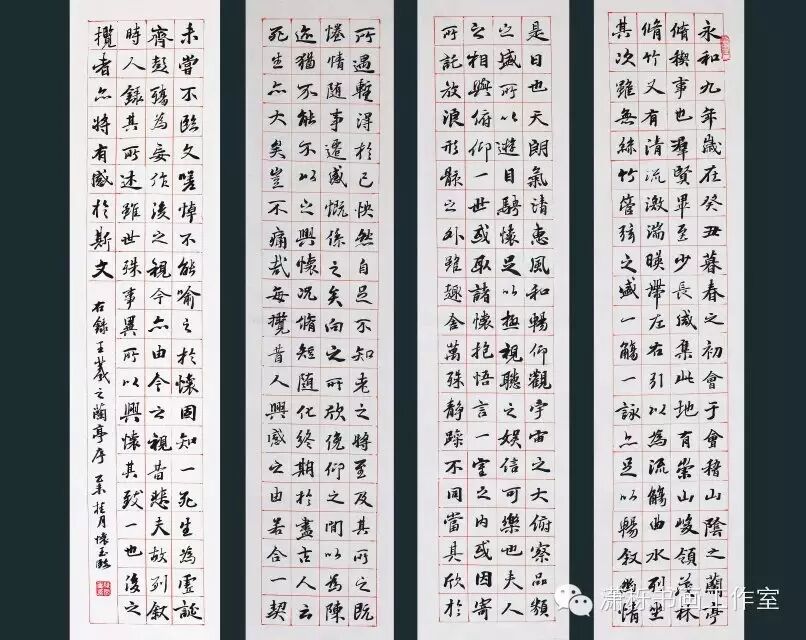 永和九年歲在癸丑暮春之初會于會稽山陰之蘭亭
脩禊事也羣賢畢至少長咸集此地有崇山峻領茂林
脩竹又有清流激湍暎帶左右引以為流觴曲水列坐
其次雖無絲竹管弦之盛一觴一詠亦足以暢敘幽情
是日也天朗氣清惠風和暢仰觀宇宙之大俯察品類
之盛所以遊目騁懷足以極視聽之娛信可樂也夫人
之相與俯仰一世或取諸懷抱悟言一室之內或因寄
所託放浪形骸之外雖趣舍萬殊靜躁不同當其欣於
所遇暫得於己怏然自足不知老之將至及其所之既
惓情随事遷感慨係之矣向之所欣俛仰之間以為陳
迹猶不能不以之興懷況脩短随化終期於盡古人云
死生亦大矣豈不痛哉每攬昔人興感之由若合一契
未嘗不臨文嗟悼不能喻之於懷固知一死生為虛誕
齊彭殤為妄作後之視今亦由今之視昔悲夫故列敘
時人錄其所述雖世殊事異所以興懷其致一也後之
攬者亦將有感於斯文
右錄王羲之蘭亭序 乙未桂月懷玉
萧栎书画工作室